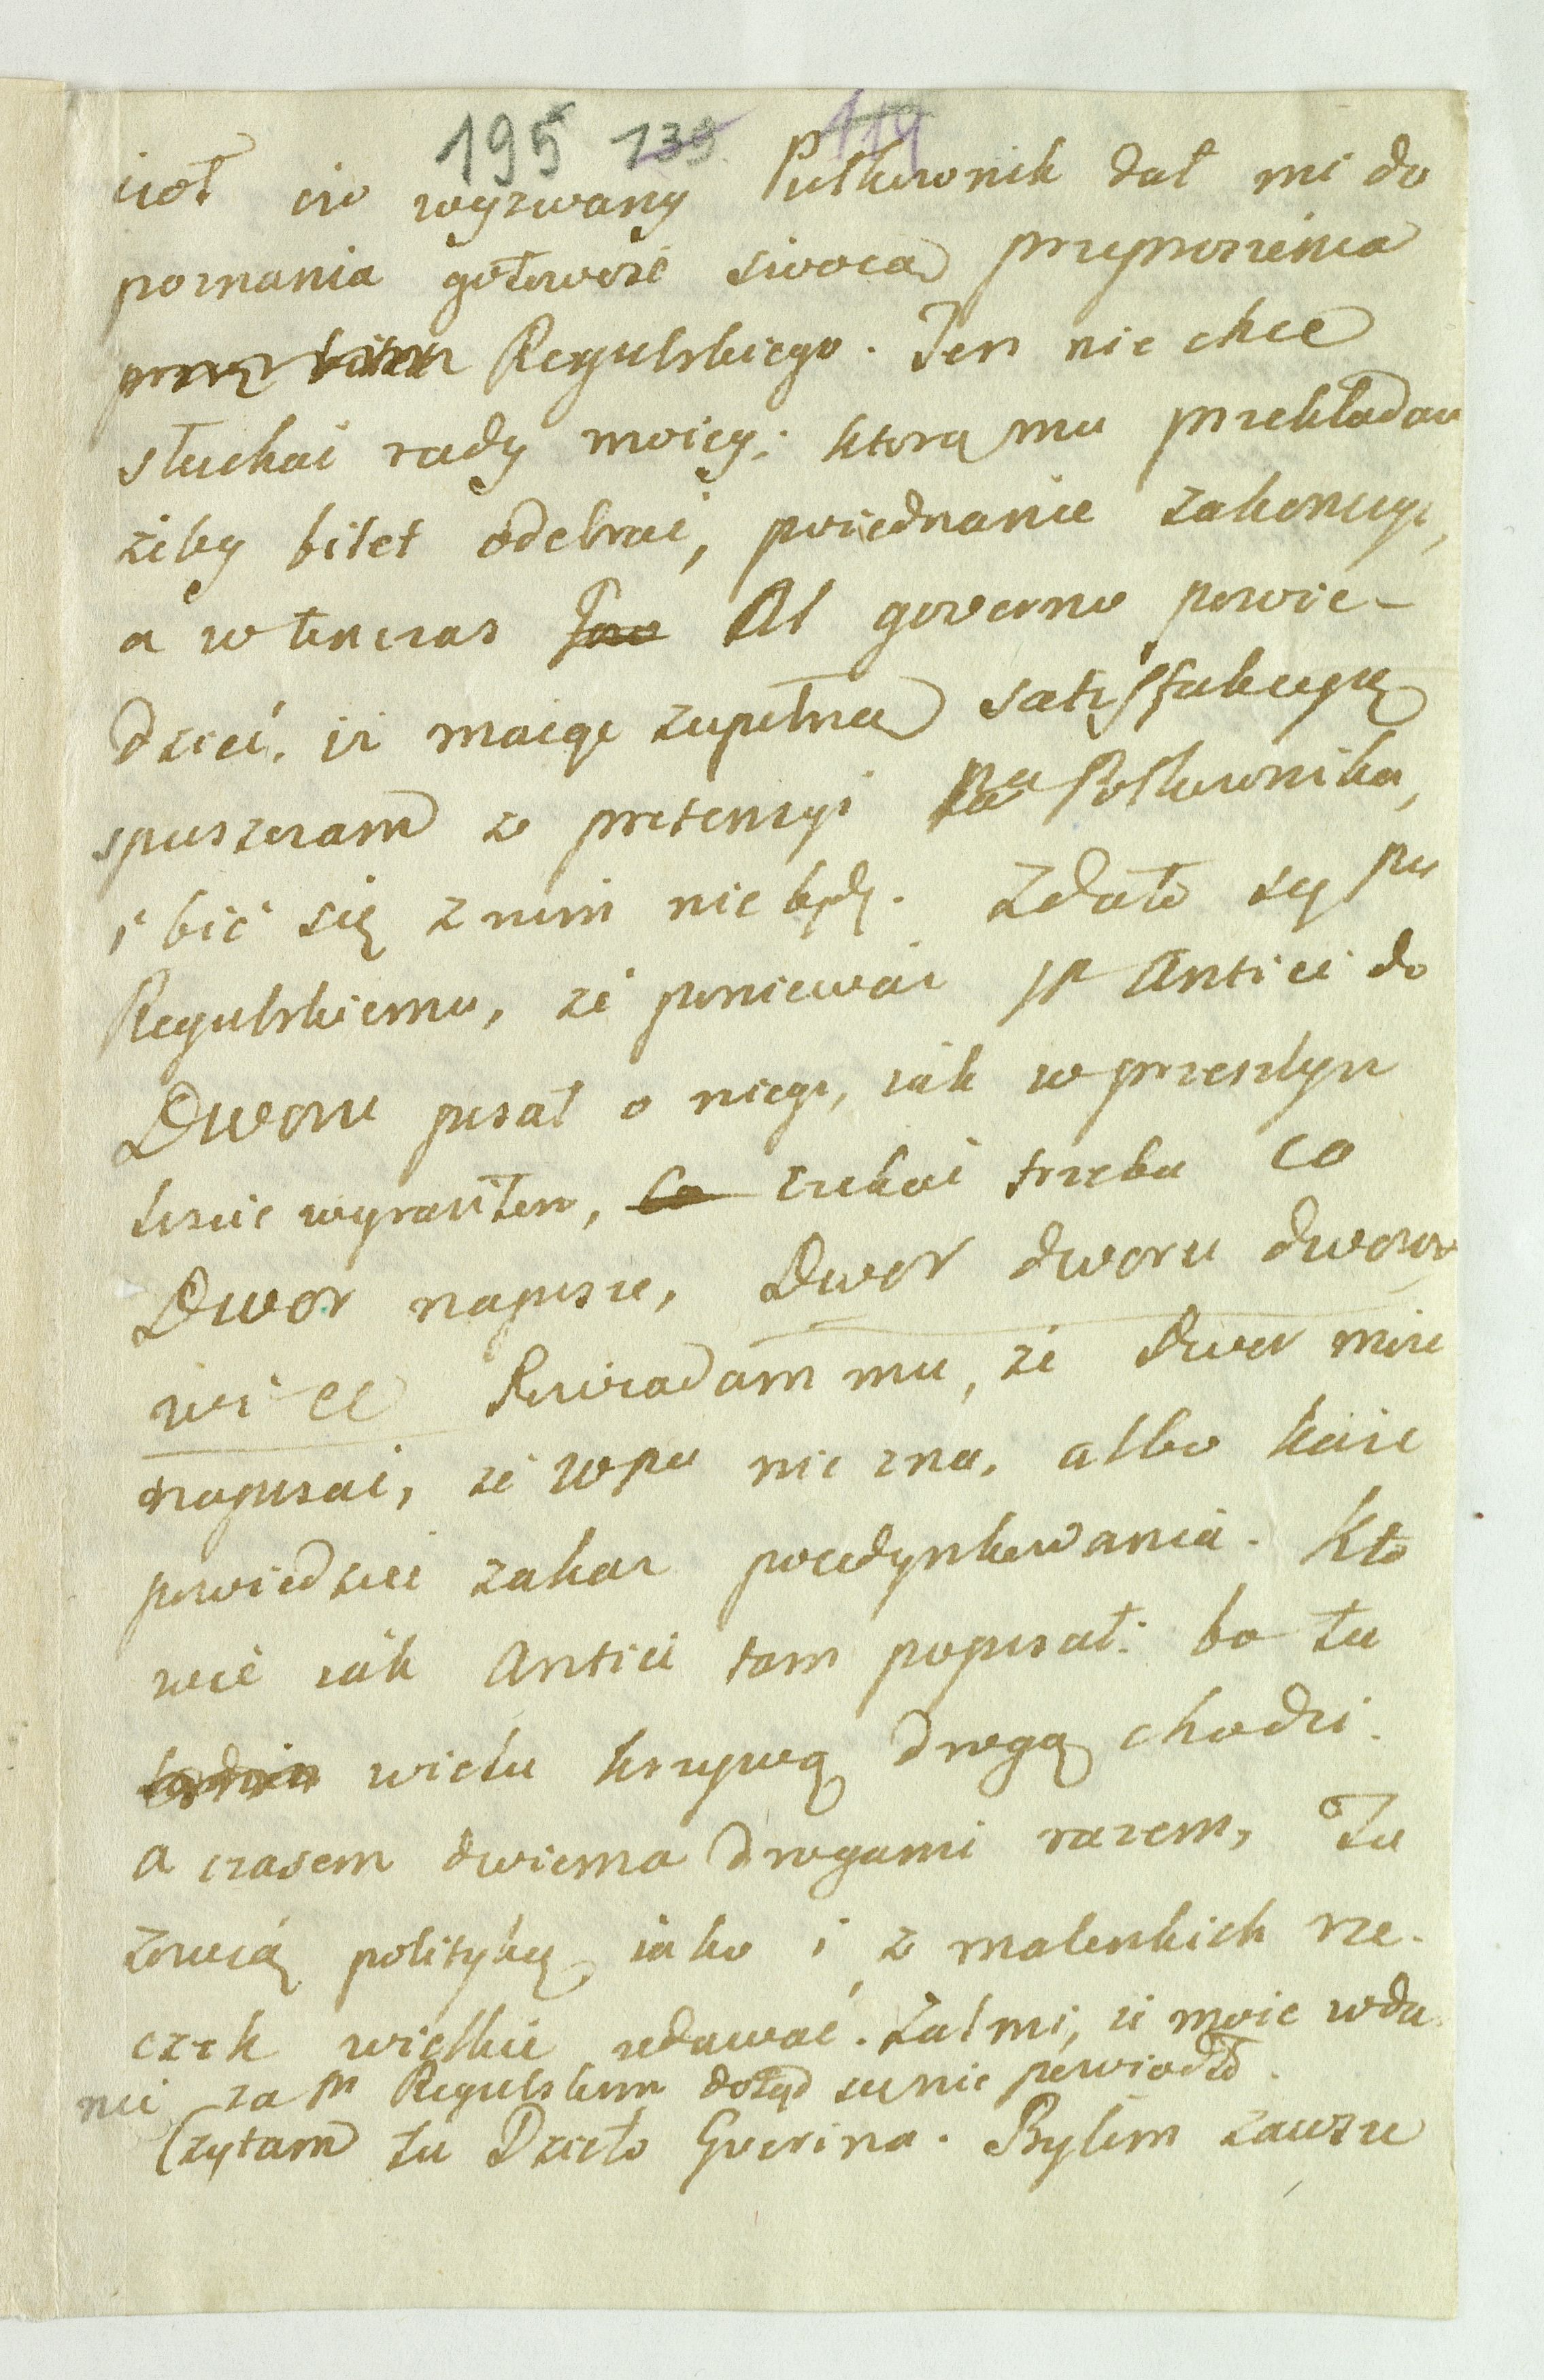 195 139 119
ciół ... wyzwany Pułkownik dał mi do
poznania gotowość swoią przeproszenia
przez bilet Regulskiego. Ten nie chce
słuchać rady moiey: ktorą mu przekładam
żeby bilet odebrać, poiednanie zakonczyć,
a w tenczas Al governo powie-
dzieć, iż maiąc zupełną satisfakcyą
spuszczam z pretensyi Pa Połkownika,
i bić się z nim nie będę. Zdało się Pu
Regulskiemu, że ponieważ JP Antici do
Dworu pisał o niego, iak w przeszłym
liście wyraziłem, Co czekać trzeba co
Dwor napisze, Dwor dworu dworow
wi ec Powiadam mu, że Dwor może
napisać, że WPa nie zna, albo każe
powiedzieć zakaz poiedynkowania. Kto
wie iak Antici tam popisał: bo tu
wielu krzywą drogą chodzi.
a czasem dwiema drogami razem, Tu
zowią polityką iako i z malenkich rze-
czek wielkie udawać. Żal mi, iż moie wda-
nie za Pm Regulskim dotąd się nie powiodło.
Czytam tu Dzieło Gverina. Byłem zawsze